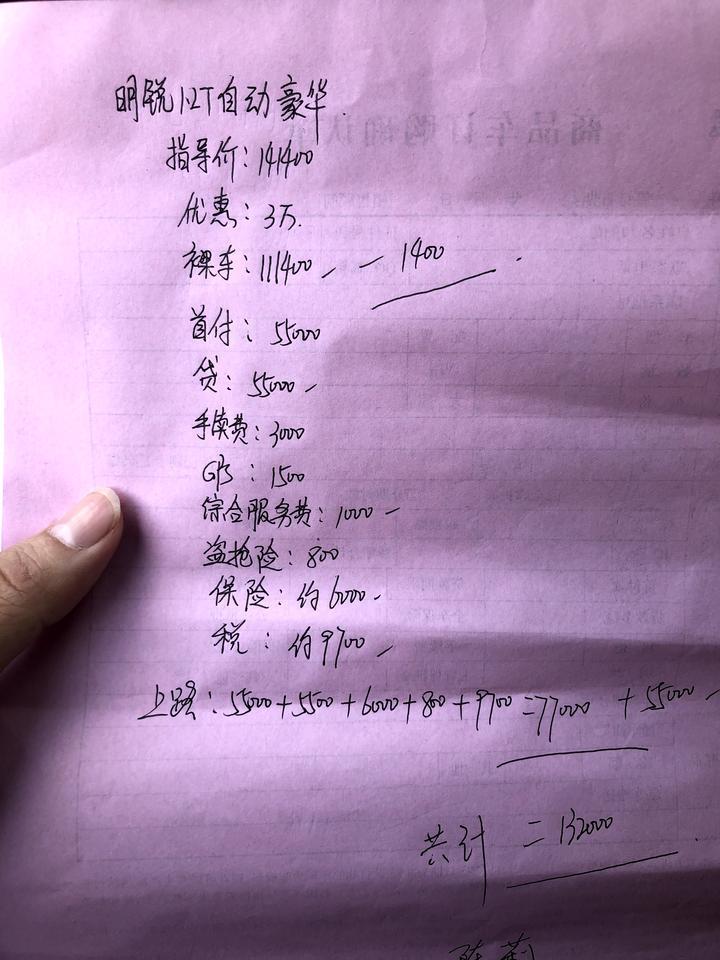 明锐1.2T自动豪华
指导价：141400
优惠：3万.
裸车：111400 — 1400
首付：55000
贷：55000
手续费：3000
GPS：1500
综合服务费：1000
盗抢险：800
保险：约6000
税：约9700
上路：55000+5500+6000+800+9700=77000 +55000
共计 =132000